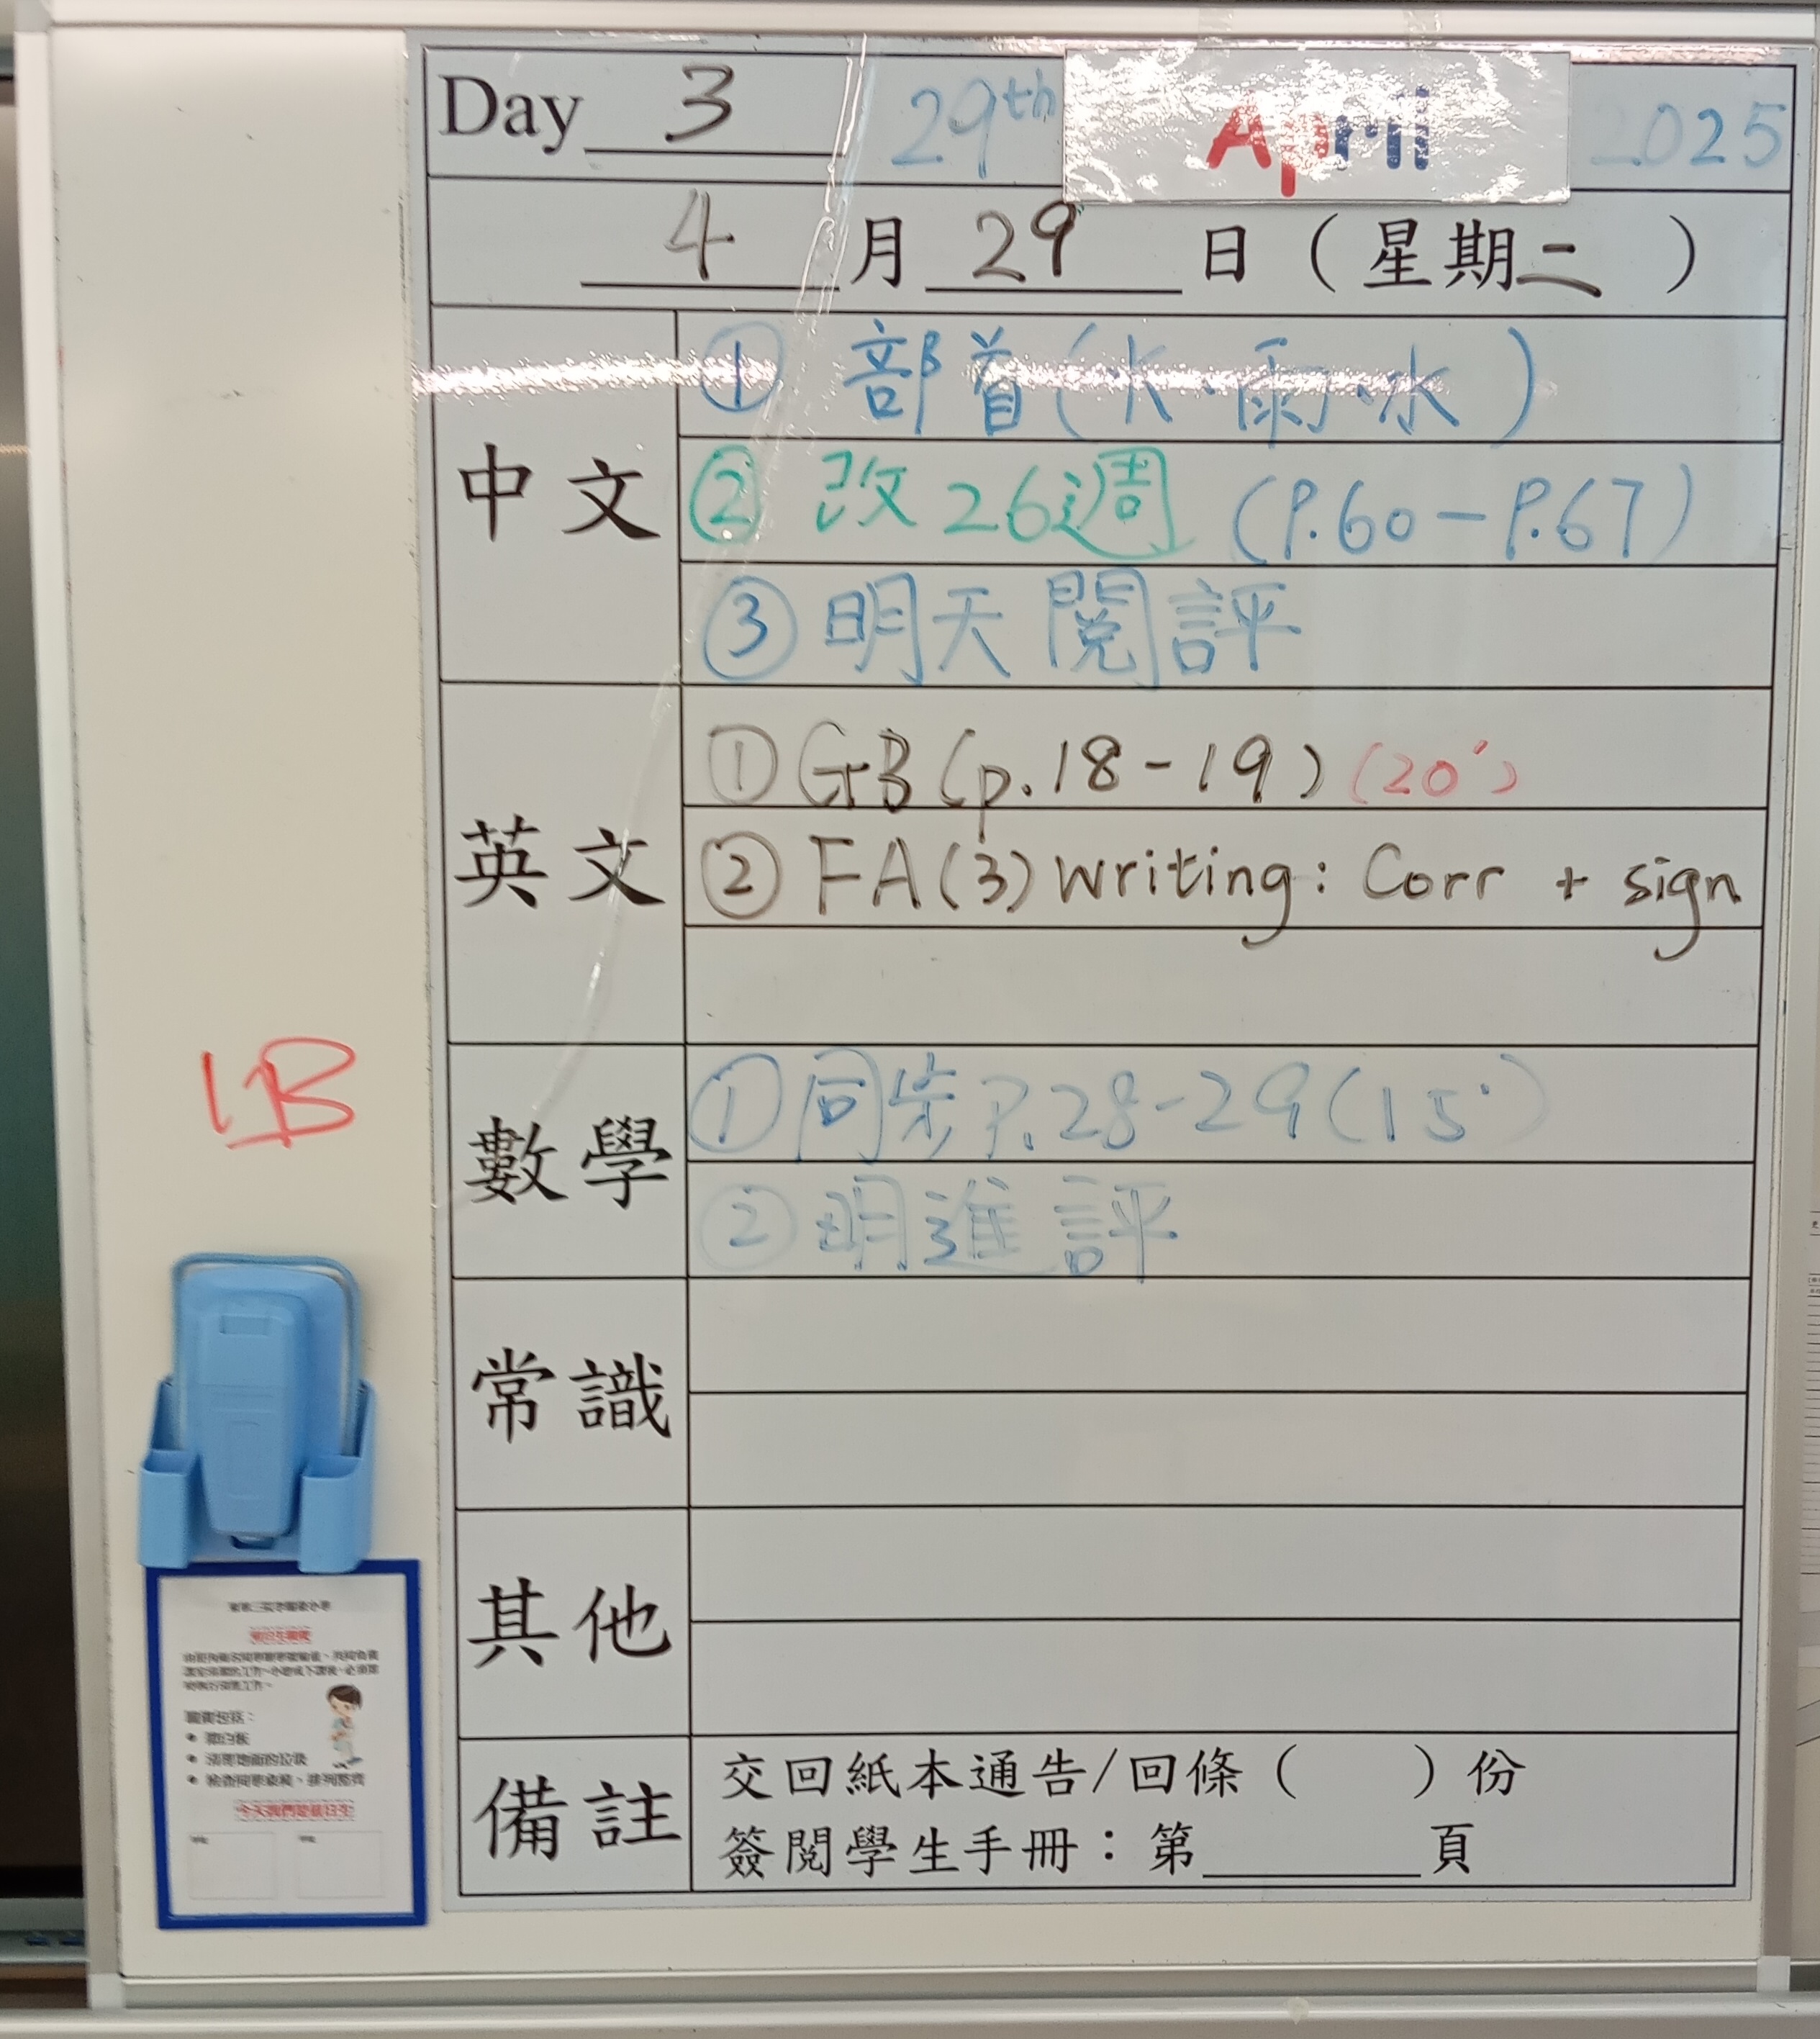 Day 3 29th April 2025
4 月 29 日 ( 星期二 )
中文
① 部首(水·雨·水)
② 改26週 (P.60-P.67)
③ 明天閱評
英文
① GB (p.18-19) (20')
② FA(3) writing: Corr + sign
數學
① 同步P.28-29(15')
② 明進評
常識
其他
備註
交回紙本通告/回條 ( ) 份
簽閱學生手冊：第 頁
1B
職責包括：